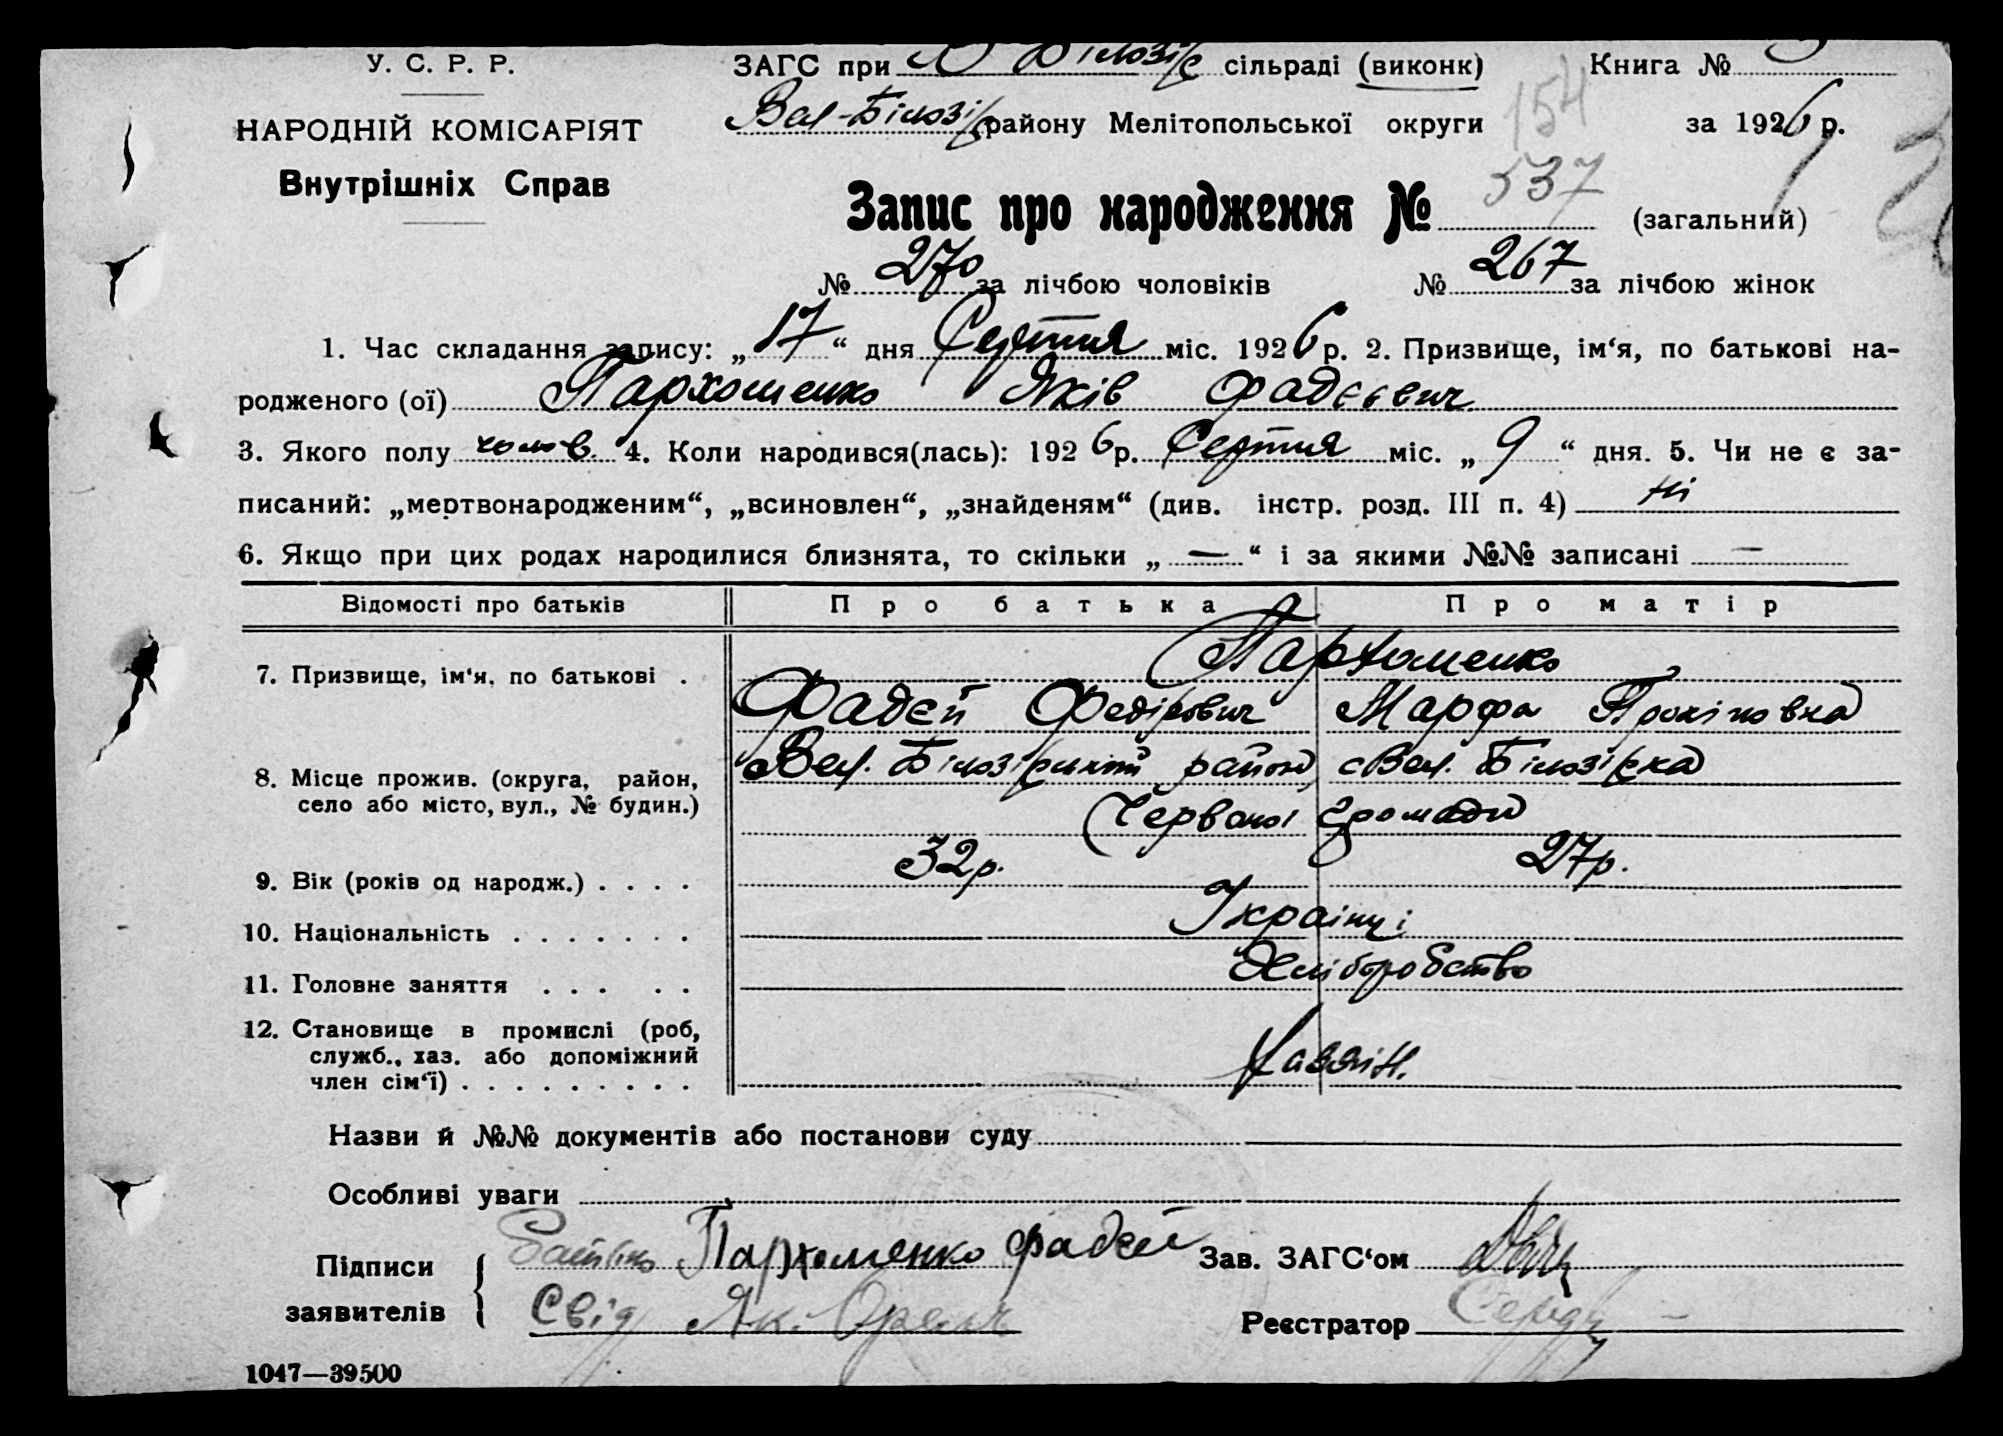 У. С. Р. Р.
НАРОДНІЙ КОМІСАРІЯТ
Внутрішніх Справ
ЗАГС при В Білозір сільраді (виконк) Книга №
Вел-Білозір району Мелітопольської округи за 1926 р.
154
Запис про народження № 537 (загальний)
№ 270 за лічбою чоловіків № 267 за лічбою жінок
1. Час складання запису: „17“ дня Серпня міс. 1926 р. 2. Призвище, ім‘я, по батькові на-
родженого (ої) Пархоменко Яків Фадєєвич
3. Якого полу чолов. 4. Коли народився(лась): 1926 р. Серпня міс. „9“ дня. 5. Чи не є за-
писаний: „мертвонародженим“, „всиновлен“, „знайденям“ (див. інстр. розд. III п. 4) Ні
6. Якщо при цих родах народилися близнята, то скільки „—“ і за якими №№ записані —
Відомості про батьків Про батька Про матір
7. Призвище, ім‘я, по батькові . Пархоменко
Фадєй Федірович Марфа Прокіповна
8. Місце прожив. (округа, район, село або місто, вул., № будин.) Вел. Білозірський район с Вел. Білозірка
Червоної Громади
9. Вік (років од народж.) . . . . 32 р. 27 р.
10. Національність . . . . . . . Українці
11. Головне заняття . . . . . Хліборобство
12. Становище в промислі (роб,
служб., хаз. або допоміжний
член сім‘ї) . . . . . . . . . Хазяїн.
Назви й №№ документів або постанови суду
Особливі уваги
Підписи заявителів { батько Пархоменко фадей Зав. ЗАГС‘ом
Свід Як. Реєстратор
1047—39500